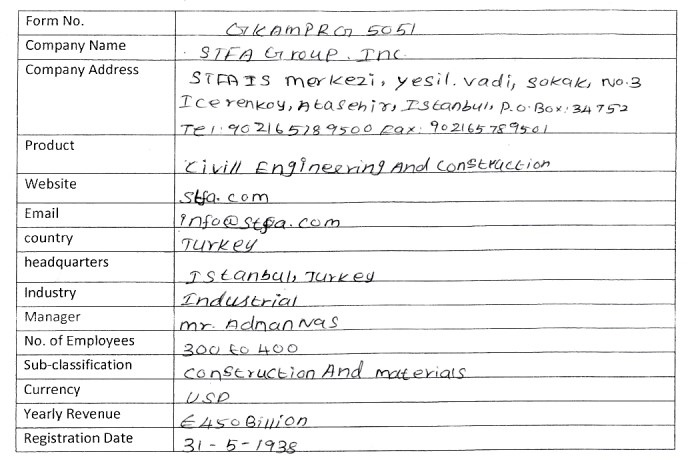 Form No. GKAMPRG 5051
Company Name STFA Group. Inc.
Company Address STFA IS merkezi, yesil. vadi, sokak, No.3
Icerenkoy, Atasehir, Istanbul, P.O.Box:34752
Tel: 902165789500 Fax: 902165789501
Product Civill Engineering And Construction
Website stfa.com
Email info@stfa.com
country Turkey
headquarters Istanbul, Turkey
Industry Industrial
Manager mr. Adnan Nas
No. of Employees 300 to 400
Sub-classification construction And materials
Currency USD
Yearly Revenue €450 Billion
Registration Date 31-5-1938